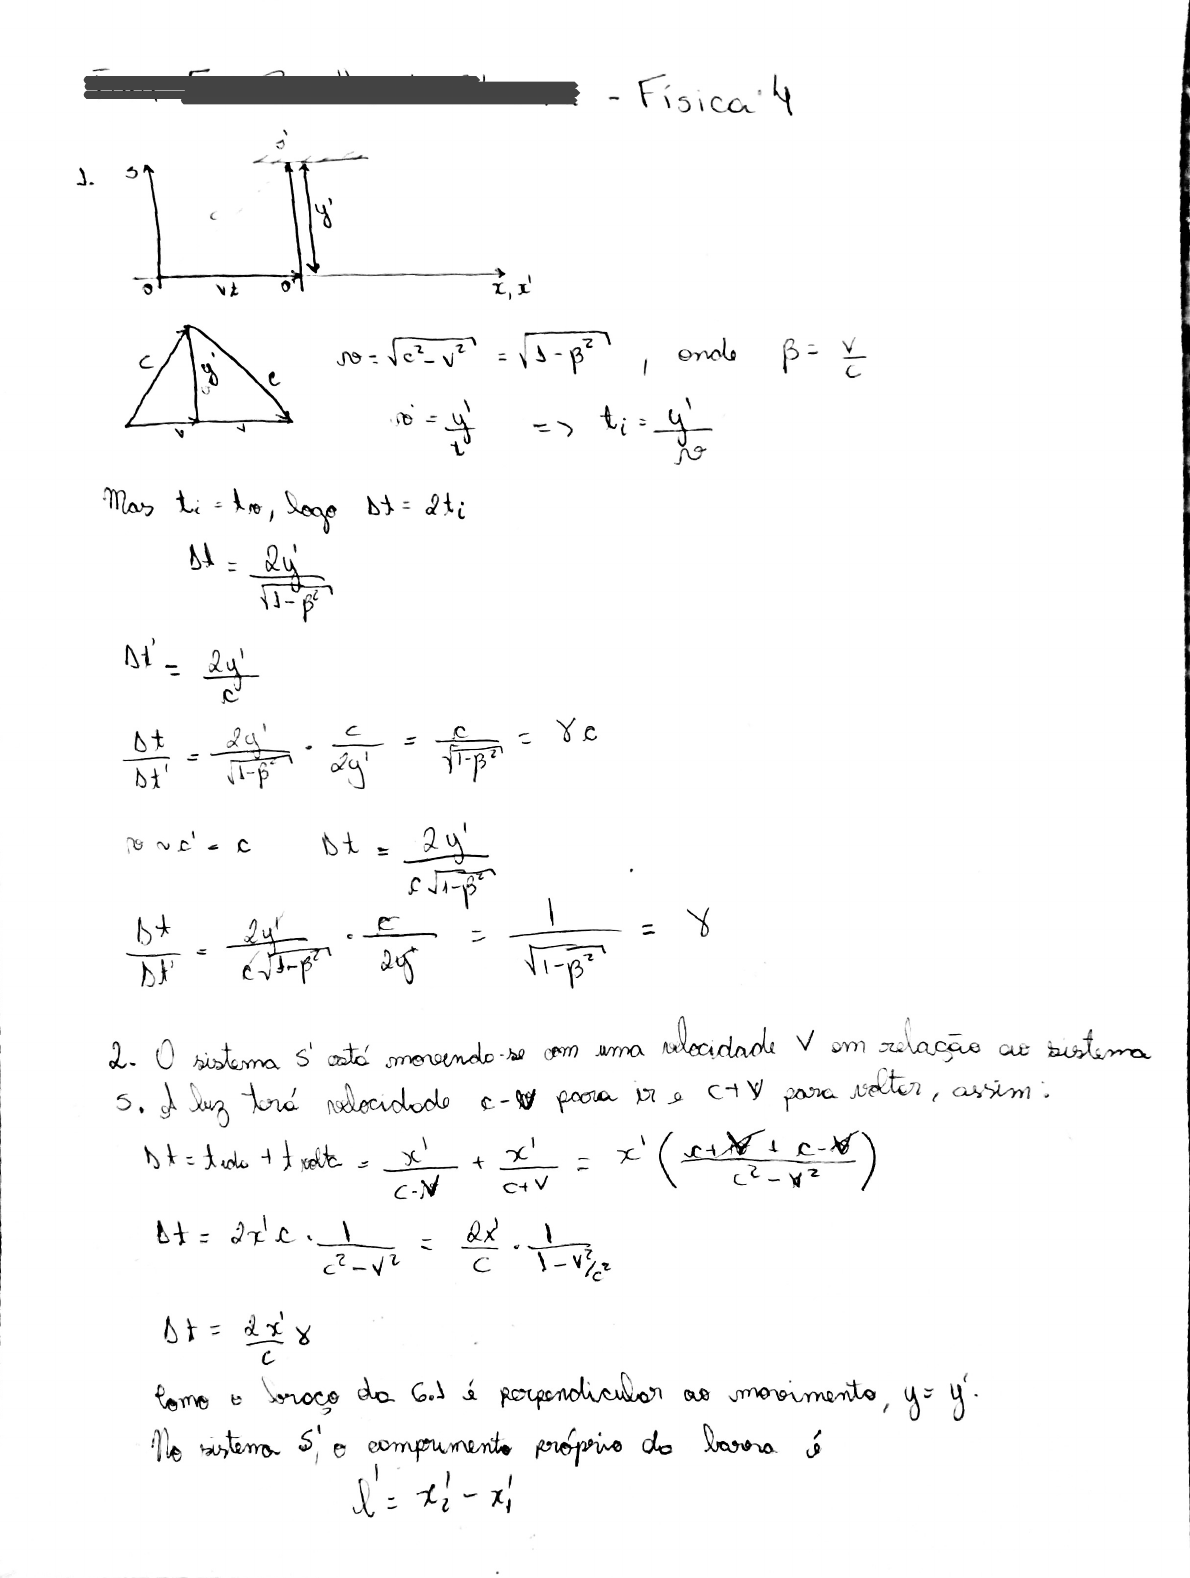 - Física 4
S'
1. S
y'
O vt O' x, x'
c y' c
v v
v = √(c² - v²) = √(1 - β²) , onde β = v/c
v = y'/t => tᵢ = y'/v
Mas tᵢ = tᵥ, logo Δt = 2tᵢ
Δt = 2y'/√(1-β²)
Δt' = 2y'/c
Δt/Δt' = 2y'/√(1-β²) · c/2y' = c/√(1-β²) = γc
v ~ c' = c Δt = 2y'/(c√(1-β²))
Δt/Δt' = 2y'/(c√(1-β²)) · c/2y' = 1/√(1-β²) = γ
2. O sistema S' está movendo-se com uma velocidade V em relação ao sistema
S. A luz terá velocidade c-V para ir e c+V para voltar, assim:
Δt = t ida + t volta = x'/(c-V) + x'/(c+V) = x' ((c+V + c-V)/(c² - V²))
Δt = 2x'c · 1/(c² - V²) = 2x'/c · 1/(1 - V²/c²)
Δt = 2x'/c γ
Como o braço da 6.1 é perpendicular ao movimento, y = y'.
No sistema S', o comprimento próprio da barra é
l' = x₂' - x₁'